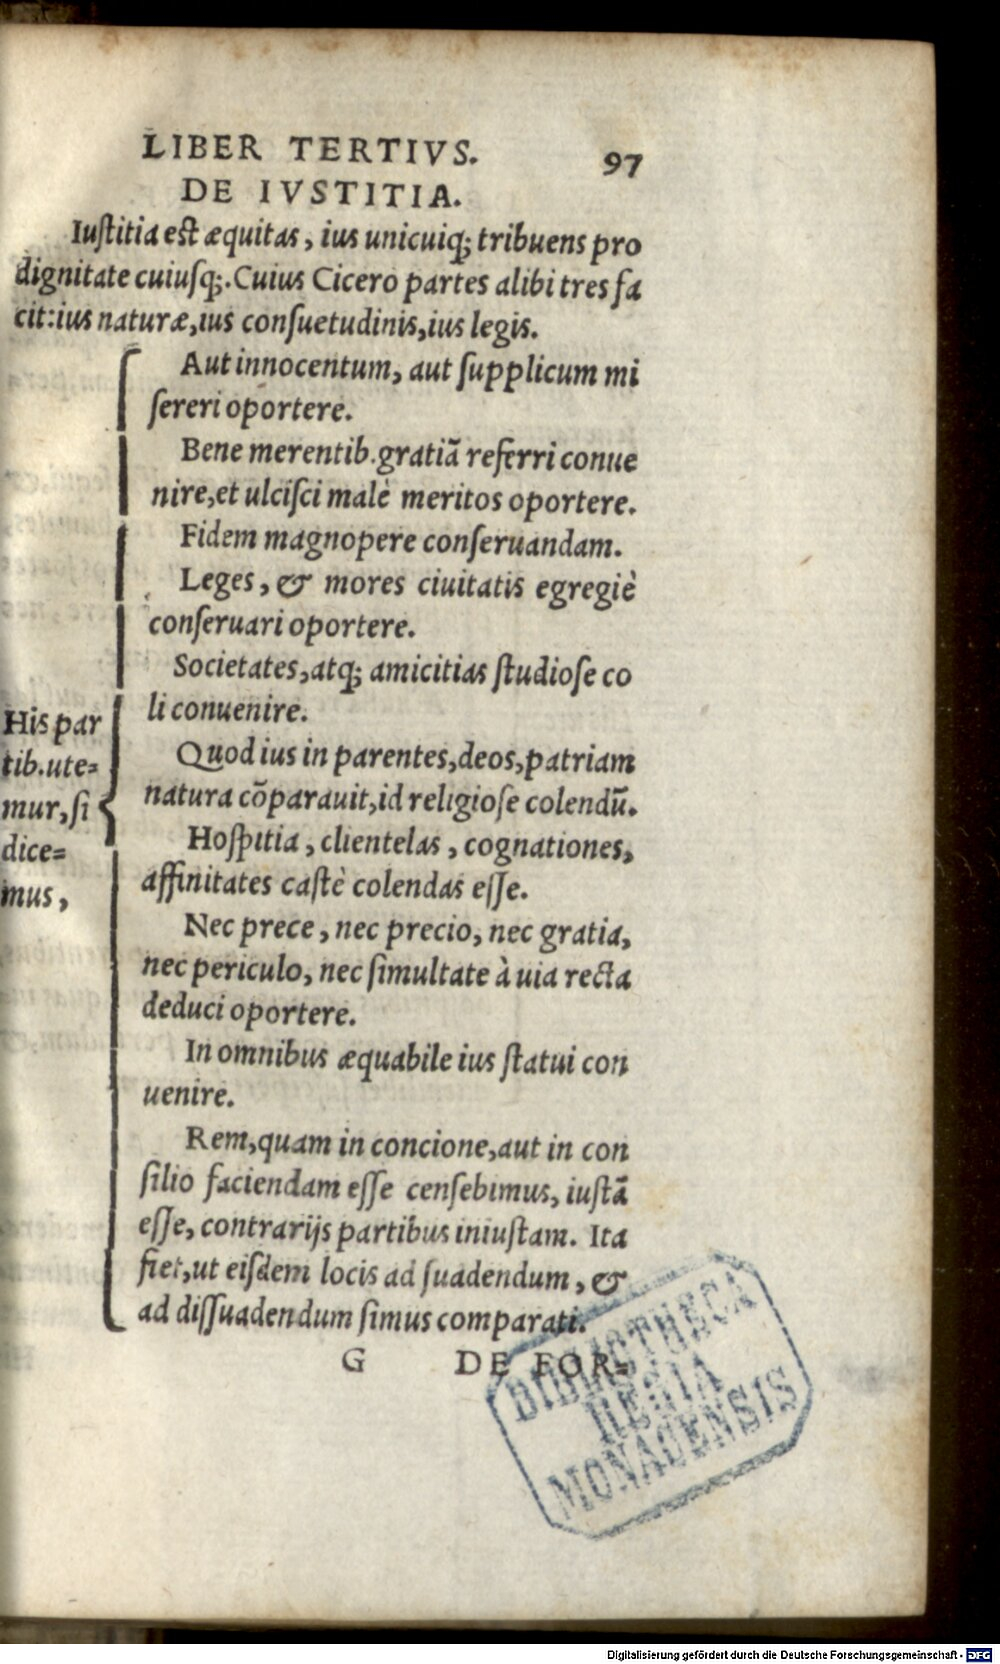 LIBER TERTIVS. 97
DE IVSTITIA.
Iuſtitia eſt æquitas, ius unicuiq; tribuens pro
dignitate cuiuſq;. Cuius Cicero partes alibi tres fa
cit: ius naturæ, ius conſuetudinis, ius legis.
Aut innocentum, aut ſupplicum mi
ſereri oportere.
Bene merentib. gratiã referri conue
nire, et ulciſci malè meritos oportere.
Fidem magnopere conſeruandam.
Leges, & mores ciuitatis egregiè
conſeruari oportere.
Societates, atq; amicitias ſtudioſe co
li conuenire.
His par
tib. ute=
mur, ſi
dice=
mus,
Quod ius in parentes, deos, patriam
natura cõparauit, id religioſe colendũ.
Hoſpitia, clientelas, cognationes,
affinitates caſtè colendas eſſe.
Nec prece, nec precio, nec gratia,
nec periculo, nec ſimultate à uia recta
deduci oportere.
In omnibus æquabile ius ſtatui con
uenire.
Rem, quam in concione, aut in con
ſilio faciendam eſſe cenſebimus, iuſtã
eſſe, contrarijs partibus iniuſtam. Ita
fiet, ut eiſdem locis ad ſuadendum, &
ad diſſuadendum ſimus comparati.
G DE FOR=
BIBLIOTHECA
REGIA
MONACENSIS
Digitalisierung gefördert durch die Deutsche Forschungsgemeinschaft - DFG